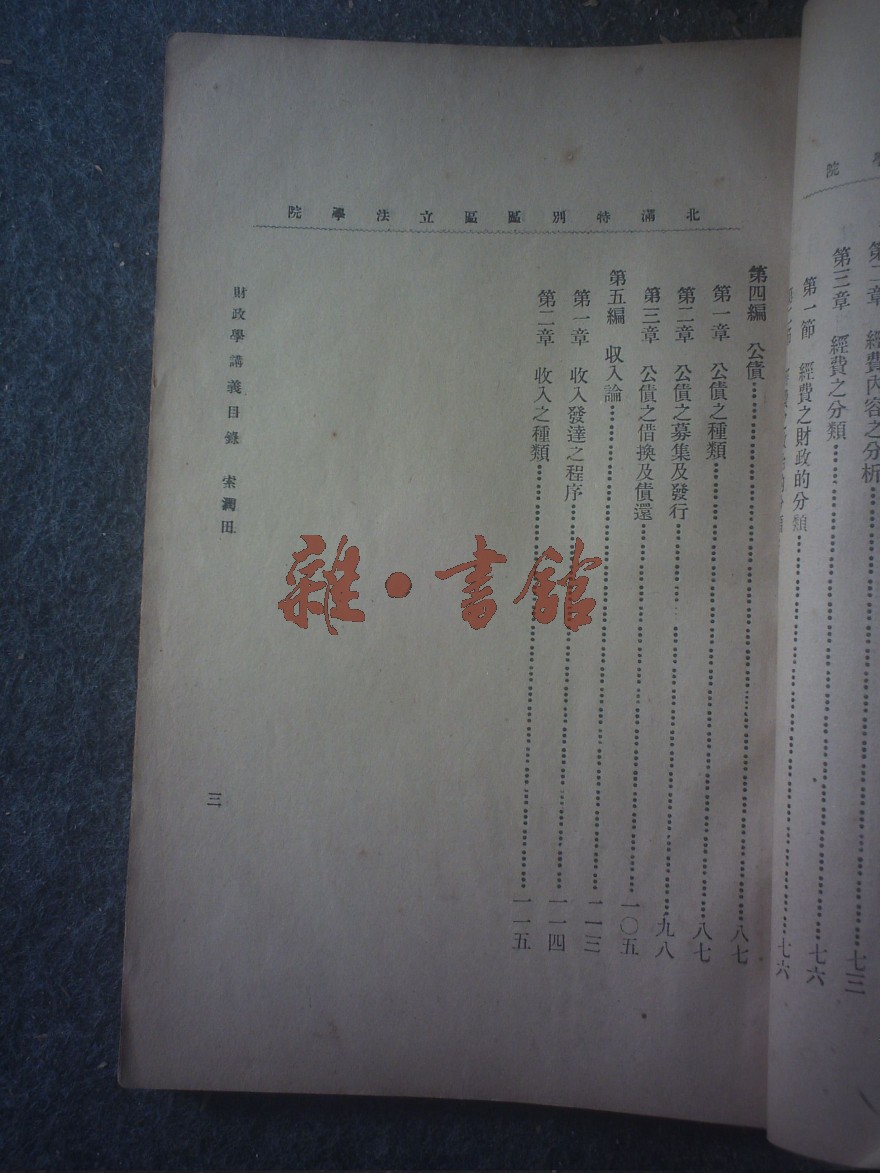 院
第二章 經費內容之分析
第三章 經費之分類……七三
第一節 經費之財政的分類……七六
七六
北滿特別區區立法學院
第四編 公債……八七
第一章 公債之種類……八七
第二章 公債之募集及發行……九八
第三章 公債之借換及債還……一〇五
第五編 收入論……一一三
第一章 收入發達之程序……一一四
第二章 收入之種類……一一五
財政學講義目錄 索潤田
三
雜·書館